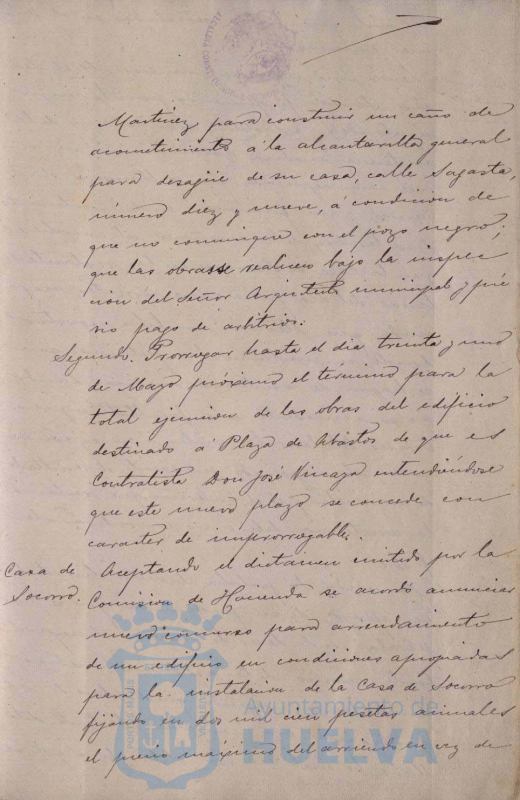 Martinez para construir un caño de
acometimiento á la alcantarilla general
para desagüe de su casa, calle Sagasta,
número diez y nueve, á condicion de
que no comunique con el pozo negro;
que las obras se realicen bajo la inspec
cion del Señor Arquitecto municipal y pré
vio pago de arbitrios.
Segundo. Prorrogar hasta el dia treinta y uno
de Mayo próximo el término para la
total ejecucion de las obras del edificio
destinado á Plaza de Abastos de que es
Contratista Don José Vizcaya entendiéndose
que este nuevo plazo se concede con
caracter de improrrogable.
Casa de
Socorro.
Aceptando el dictamen emitido por la
Comision de Hacienda se acordó anunciar
nuevo concurso para arrendamiento
de un edificio en condiciones apropiadas
para la instalacion de la Casa de Socorro
fijando en dos mil cien pesetas anuales
el precio máximo del arriendo en vez de
Ayuntamiento de
HUELVA